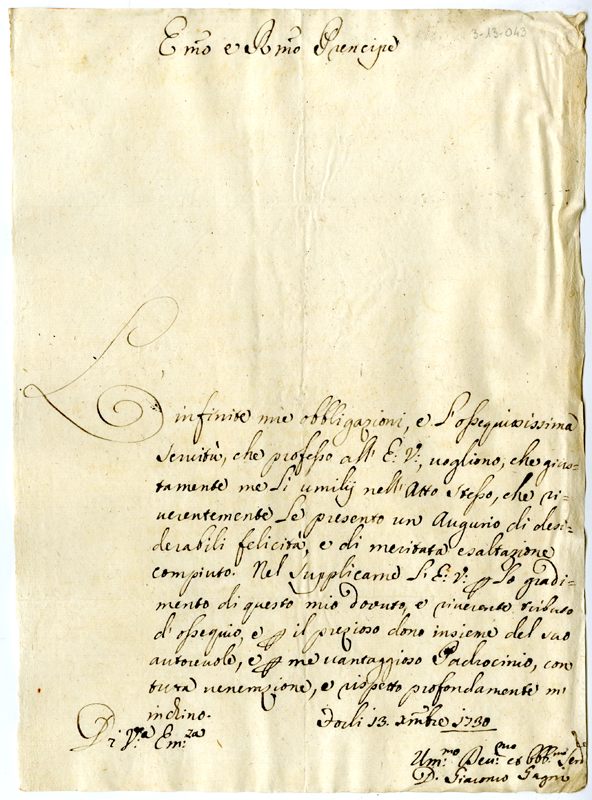 3-13-043
Emo e Rmo Prencipe
L'infinite mie obbligazioni, e l'ossequiosissima
servitù, che professo all' E: V:, vogliono, che gius=
tamente me Li umilij nell'Atto stesso, che ri=
verentemente Le presento un Augurio di desi=
derabili felicità, e di meritata esaltazione
compiuto. Nel supplicarne L'E: V: p Lo gradi=
mento di questo mio dovuto, e riverente tributo
d'ossequio, e p il prezioso dono insieme del suo
autorevole, e p me vantaggioso Padrocinio, con
tutta venerazione, e rispetto profondamente m'
inchino.
Forlì 13. Xmbre 1730
Di V:ra Em:za
Um:mo Dev:mo et obb:mo
D. Giacomo